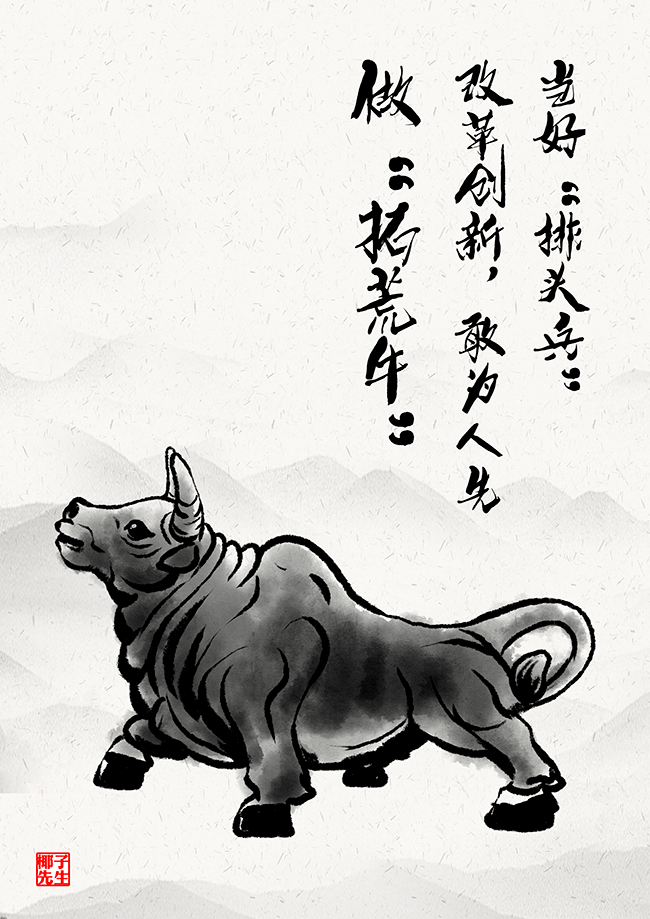 当好“排头兵”
改革创新，敢为人先
做“拓荒牛”
椰子先生